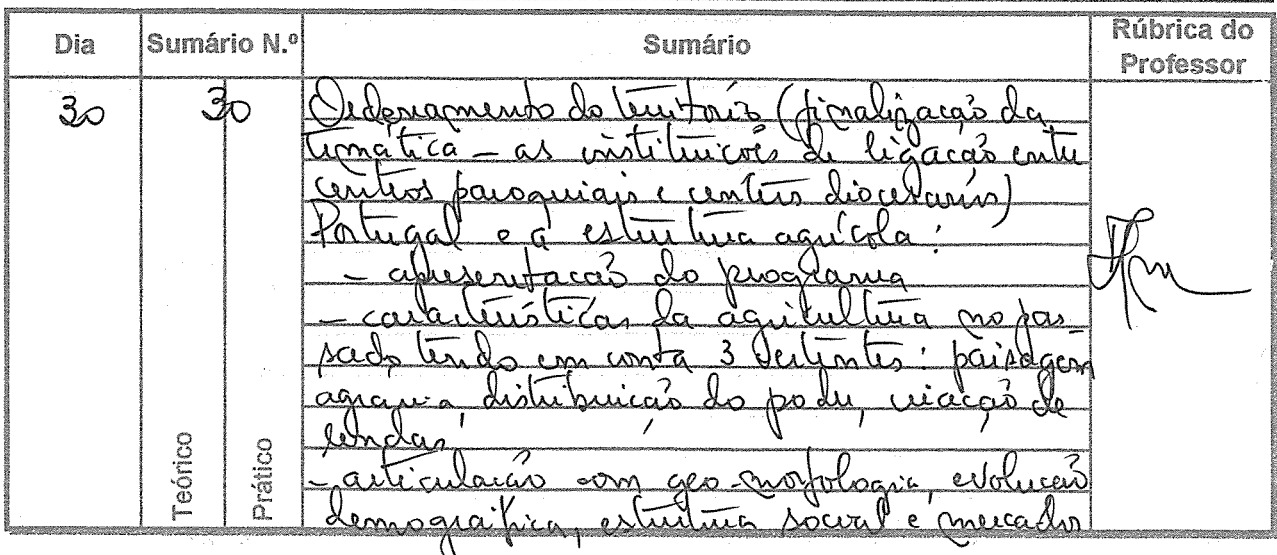 Dia Sumário N.º Sumário Rúbrica do Professor
30 30 Ordenamento do território (finalização da
temática - as instituições de ligação entre
centros paroquiais e centros diocesanos)
Portugal e a estrutura agrícola:
- apresentação do programa
- características da agricultura no pas
sado tendo em conta 3 vertentes: paisagem
agrária, distribuição do poder, criação de
rendas
- articulação com geo-morfologia, evolução
demográfica, estrutura social e mercados
Teórico Prático